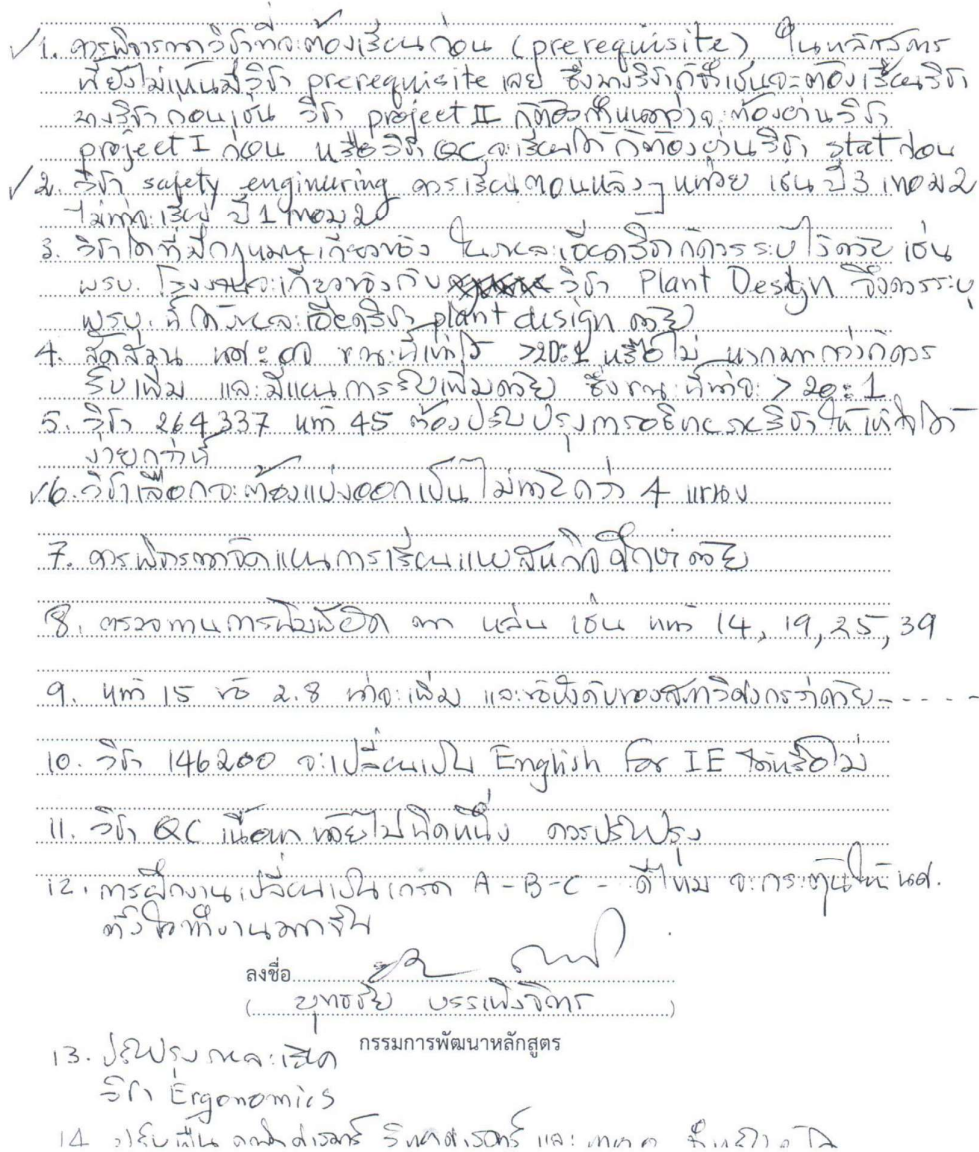 ✓1. ควรพิจารณาวิชาที่จะต้องเรียนก่อน (prerequisite) ในหลักสูตร
ที่ยังไม่เห็นมีวิชา prerequisite เลย ซึ่งบางวิชาก็จำเป็นจะต้องเรียนวิชา
บางวิชาก่อน เช่น วิชา project II ก็ต้องกำหนดว่าจะต้องผ่านวิชา
project I ก่อน หรือวิชา QC จะเรียนได้ ก็ต้องผ่านวิชา stat ก่อน
✓2. วิชา safety engineering ควรเรียนตอนหลังๆ หน่อย เช่น ปี 3 เทอม 2
ไม่น่าจะเรียน ปี 1 เทอม 2
3. วิชาใดที่มีกฎหมายเกี่ยวข้อง ในรายละเอียดวิชาก็ควรระบุไว้ด้วย เช่น
พรบ. โรงงานจะเกี่ยวข้องกับ วิชา Plant Design จึงควรระบุ
พรบ. นี้ในรายละเอียดวิชา plant design ด้วย
4. สัดส่วน นศ : อจ ขณะนี้เท่าไร >20:1 หรือไม่ หากมากกว่าก็ควร
รับเพิ่ม และมีแผนการรับเพิ่มด้วย ซึ่งขณะนี้น่าจะ > 20:1
5. วิชา 264337 หน้า 45 ต้องปรับปรุงการอธิบายรายวิชาให้เข้าใจได้
ง่ายกว่านี้
✓6. วิชาเลือกจะต้องแบ่งออกเป็นไม่น้อยกว่า 4 แขนง
7. ควรพิจารณาจัดแผนการเรียนแบบสหกิจศึกษาด้วย
8. ตรวจทานการพิมพ์ผิด ตก หล่น เช่น หน้า 14, 19, 25, 39
9. หน้า 15 ข้อ 2.8 น่าจะเพิ่ม และข้อบังคับของสภาวิศวกรว่าด้วย-----
10. วิชา 146200 จะเปลี่ยนเป็น English for IE ได้หรือไม่
11. วิชา QC เนื้อหาน้อยไปนิดหนึ่ง ควรปรับปรุง
12. การฝึกงานเปลี่ยนเป็นเกรด A-B-C- ดีไหม จะกระตุ้นให้ นศ.
ตั้งใจทำงานมากขึ้น
ลงชื่อ
( ยุทธชัย บรรเทิงจิตร )
กรรมการพัฒนาหลักสูตร
13. ปรับปรุงรายละเอียด
วิชา Ergonomics
14